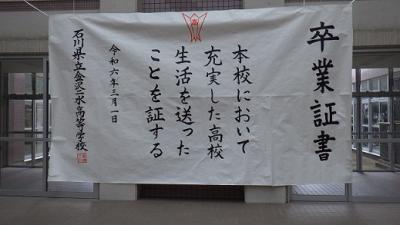 卒業証書
本校において
充実した高校
生活を送った
ことを証する
令和六年三月一日
石川県立金沢二水高等学校